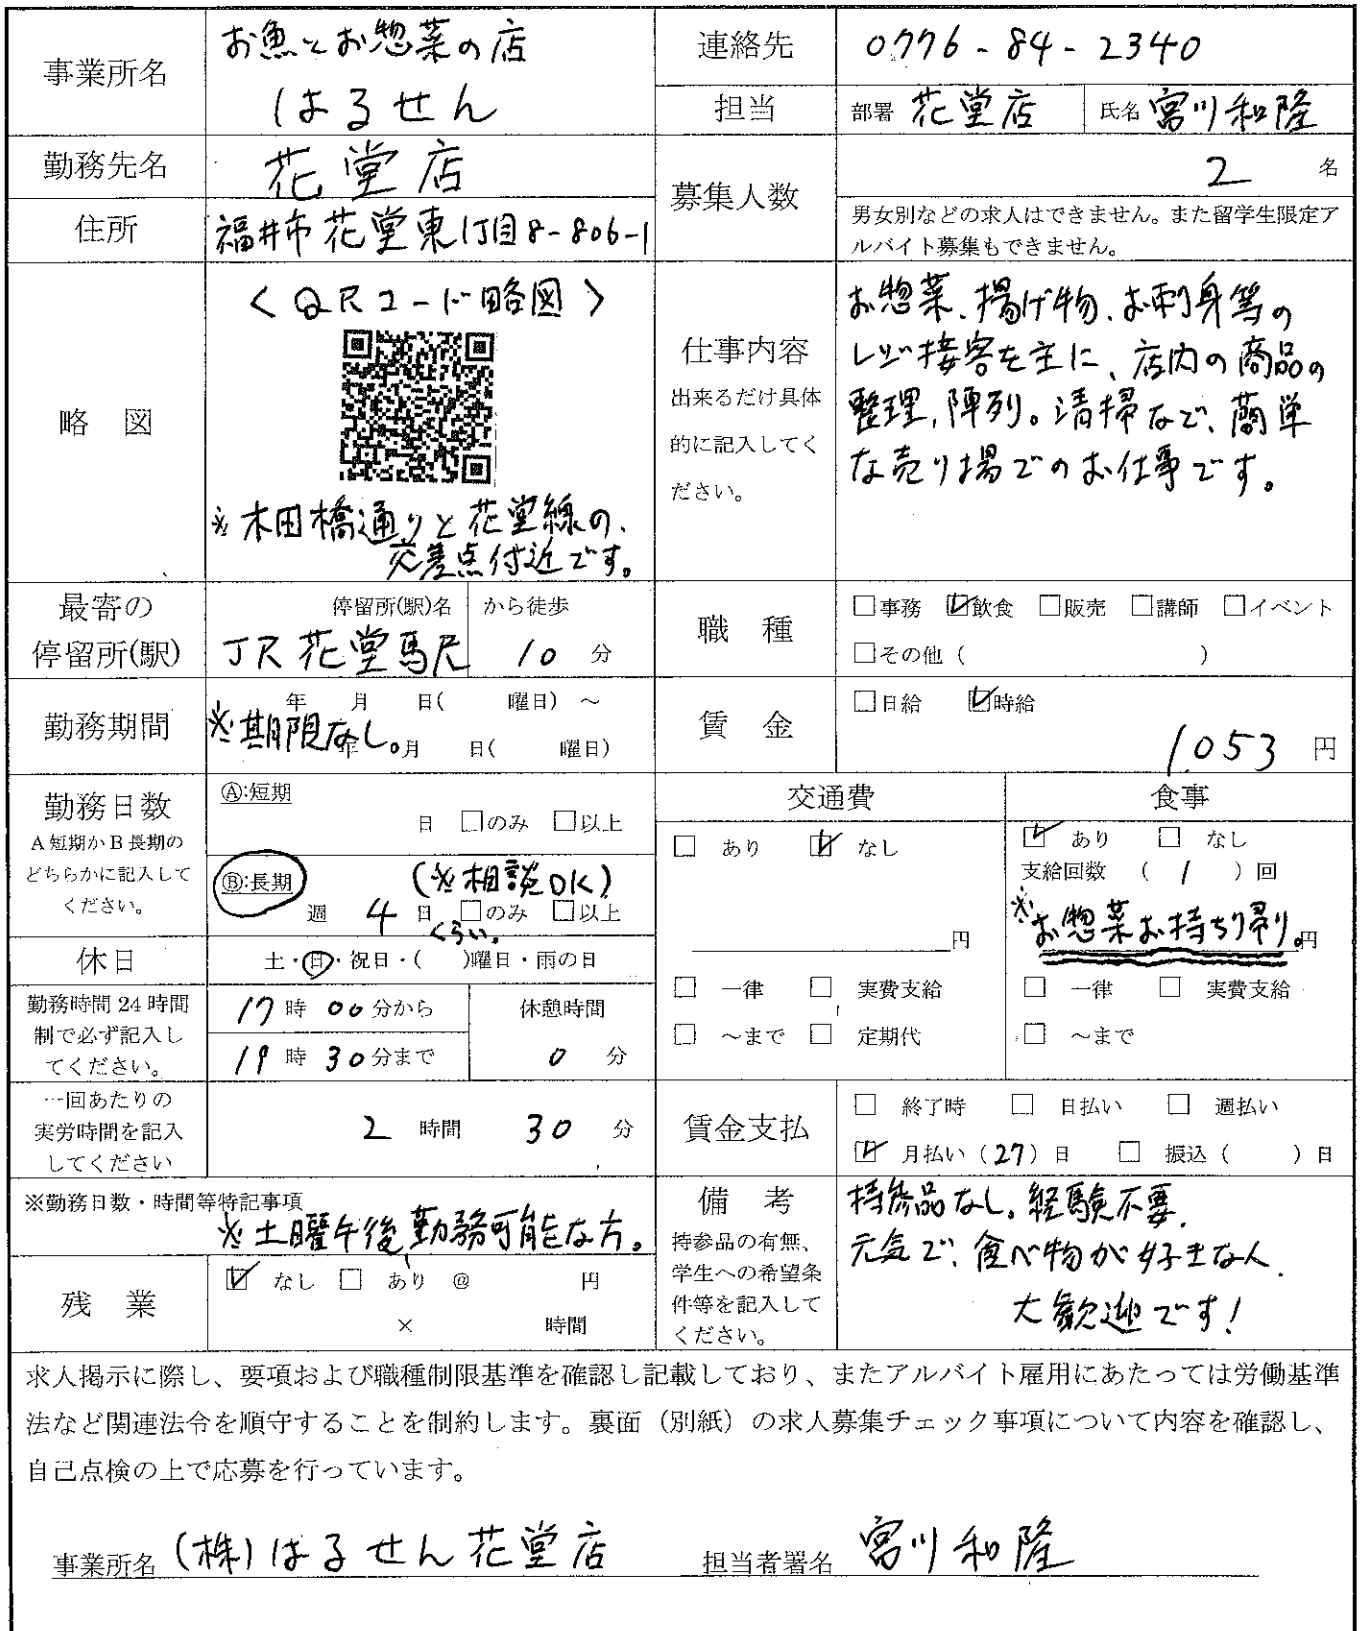 事業所名
お魚とお惣菜の店
はるせん
連絡先
0776-84-2340
担当
部署 花堂店
氏名 宮川和隆
勤務先名
花堂店
募集人数
2 名
男女別などの求人はできません。また留学生限定ア
ルバイト募集もできません。
住所
福井市花堂東1丁目8-806-1
略 図
<QRコード略図>
※木田橋通りと花堂線の、
交差点付近です。
仕事内容
出来るだけ具体
的に記入してく
ださい。
お惣菜、揚げ物、お刺身等の
レジ接客を主に、店内の商品の
整理、陣列。清掃など、簡単
な売り場でのお仕事です。
最寄の
停留所(駅)
停留所(駅)名
JR花堂駅
から徒歩
10 分
職 種
□事務 ☑飲食 □販売 □講師 □イベント
□その他 ( )
勤務期間
年 月 日( 曜日) ～
※期限なし。
年 月 日( 曜日)
賃 金
□日給 ☑時給
1,053 円
勤務日数
A短期かB長期の
どちらかに記入して
ください。
Ⓐ:短期
日 □のみ □以上
Ⓑ:長期 (※相談OK)
週 4 日 □のみ □以上
くらい。
交通費
□ あり ☑ なし
円
□ 一律 □ 実費支給
□ ～まで □ 定期代
食事
☑ あり □ なし
支給回数 ( 1 ) 回
※お惣菜お持ち帰り。円
□ 一律 □ 実費支給
□ ～まで
休日
土・日・祝日・( )曜日・雨の日
勤務時間24時間
制で必ず記入し
てください。
17時00分から
19時30分まで
休憩時間
0 分
一回あたりの
実労時間を記入
してください
2 時間 30 分
賃金支払
□ 終了時 □ 日払い □ 週払い
☑ 月払い (27) 日 □ 振込 ( ) 日
※勤務日数・時間等特記事項
※土曜午後勤務可能な方。
残 業
☑ なし □ あり @ 円
× 時間
備 考
持参品の有無、
学生への希望条
件等を記入して
ください。
持参品なし。経験不要。
元気で、食べ物が好きな人
大歓迎です!
求人掲示に際し、要項および職種制限基準を確認し記載しており、またアルバイト雇用にあたっては労働基準
法など関連法令を順守することを制約します。裏面（別紙）の求人募集チェック事項について内容を確認し、
自己点検の上で応募を行っています。
事業所名 (株)はるせん花堂店 担当者署名 宮川和隆